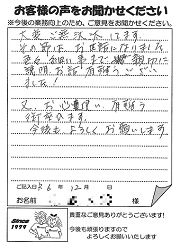 お客様の声をお聞かせください
※今後の業務向上のため、ご意見をお聞かせください※
大変ご無沙汰してます。
その節は、お世話になりました
説明お話 有難うござい
ました！
又、お心遣い 有難う
御座居ます。
今後も よろしくお願いします
ご記入日 6年 12月 日
お名前 様
Since
1999
貴重なご意見ありがとうございます!
今後も頑張りますので
よろしくお願いいたします